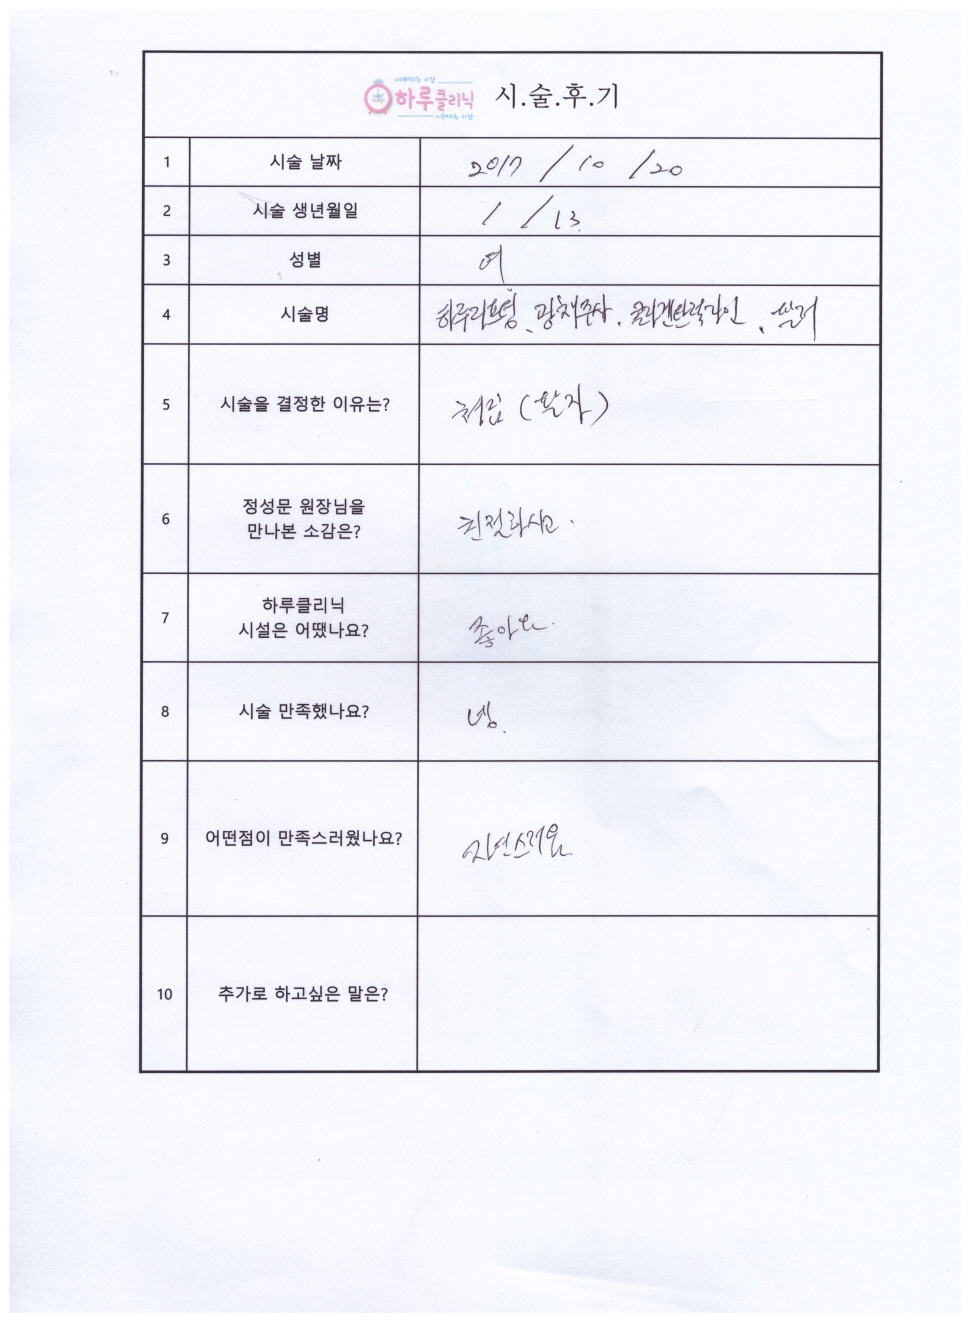 하루클리닉 시.술.후.기
1 시술 날짜 2017 / 10 / 20
2 시술 생년월일 1 / 13.
3 성별 여
4 시술명 하루리프팅, 광채주사, 콜라겐탄력라인, 필러
5 시술을 결정한 이유는? 처짐 (팔자)
6 정성문 원장님을
만나본 소감은? 친절하시고.
7 하루클리닉
시설은 어땠나요? 좋아요.
8 시술 만족했나요? 넹.
9 어떤점이 만족스러웠나요? 자연스러움
10 추가로 하고싶은 말은?